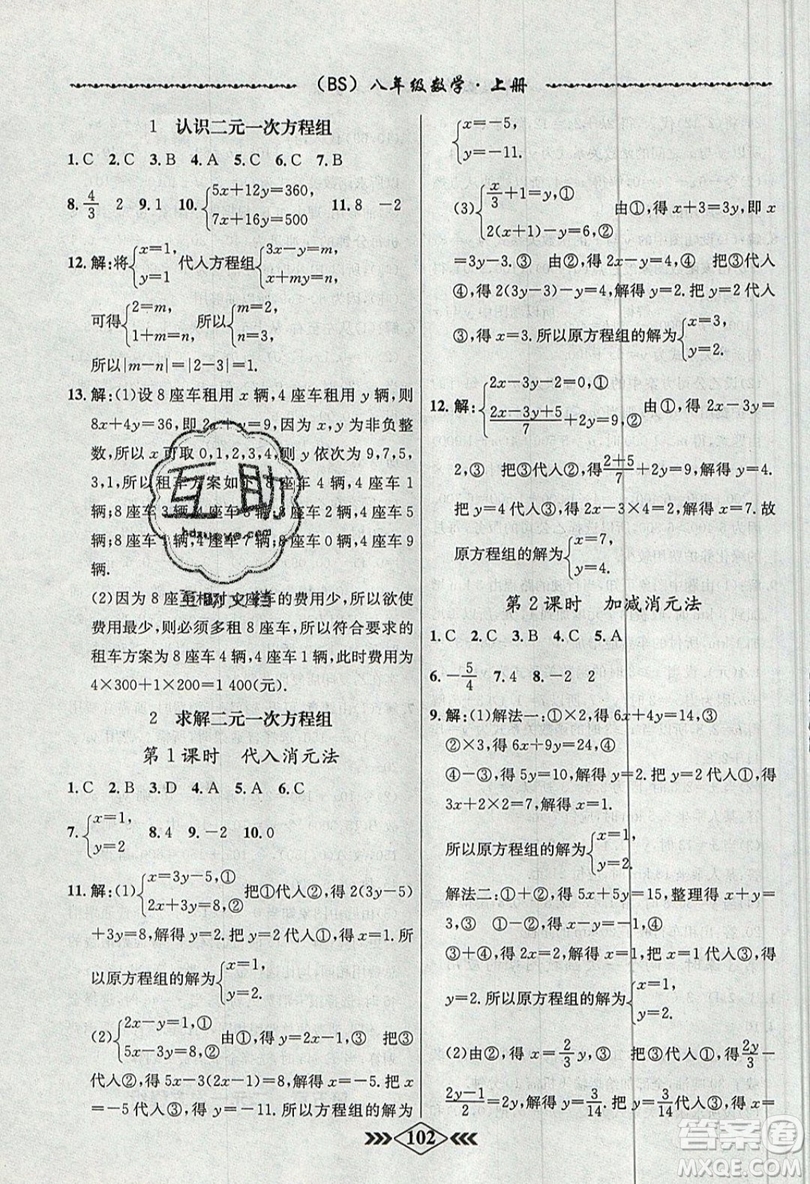 (BS) 八年级数学·上册
1 认识二元一次方程组
1.C 2.C 3.B 4.A 5.C 6.C 7.B
8. 4/3 2 9.1 10. {5x+12y=360, 7x+16y=500 11.8 -2
12.解:将{x=1, y=1 代人方程组{3x-y=m, x+my=n,
可得{2=m, 1+m=n, 所以{m=2, n=3,
所以|m-n|=|2-3|=1.
13.解:(1)设 8 座车租用 x 辆,4 座车租用 y 辆,则
8x+4y=36,即 2x+y=9,因为 x,y 为非负整
数,所以 x 可取 0,1,2,3,4,则 y 依次为 9,7,5,
3,1,所以租车方案如下:8 座车 4 辆,4 座车 1
辆;8 座车 3 辆,4 座车 3 辆;8 座车 2 辆,4 座车 5
辆;8 座车 1 辆,4 座车 7 辆;8 座车 0 辆,4 座车 9
辆.
(2)因为 8 座车相对 4 座车的费用少,所以欲使
费用最少,则必须多租 8 座车,所以符合要求的
租车方案为 8 座车 4 辆,4 座车 1 辆,此时费用为
4×300+1×200=1 400(元).
2 求解二元一次方程组
第 1 课时 代入消元法
1.C 2.B 3.D 4.A 5.A 6.C
7. {x=1, y=2 8.4 9.-2 10.0
11.解:(1){x=3y-5,① 2x+3y=8,② 把①代人②,得 2(3y-5)
+3y=8,解得 y=2.把 y=2 代人①,得 x=1.所
以原方程组的解为{x=1, y=2.
(2){2x-y=1,① 5x-3y=8,② 由①,得 y=2x-1,③ 把③
代人②,得 5x-3(2x-1)=8,解得 x=-5.把
x=-5 代人③,得 y=-11.所以原方程组的解为
{x=-5, y=-11.
(3){x/3+1=y,① 2(x+1)-y=6,② 由①,得 x+3=3y,即 x
=3y-3.③ 由②,得 2x-y=4,④ 把③代人
④,得 2(3y-3)-y=4,解得 y=2.把 y=2 代人
③,得 x=3.所以原方程组的解为{x=3, y=2.
12.解:{2x-3y-2=0,① (2x-3y+5)/7+2y=9,② 由①,得 2x-3y=
2,③ 把③代人②,得 (2+5)/7+2y=9,解得 y=4.
把 y=4 代人③,得 2x-3×4=2,解得 x=7.故
原方程组的解为{x=7, y=4.
第 2 课时 加减消元法
1.C 2.C 3.C 4.C 5.A
6.-5/4 7.4 8.-2 2
9.解:(1)解法一:①×2,得 6x+4y=14,③
②×3,得 6x+9y=24,④
④-③,得 5y=10,解得 y=2.把 y=2 代人①,得
3x+2×2=7,解得 x=1.
所以原方程组的解为{x=1, y=2.
解法二:①+②,得 5x+5y=15,整理得 x+y=
3,③ ①-②,得 x-y=-1,④
③+④,得 2x=2,解得 x=1.把 x=1 代人③,得
y=2.所以原方程组的解为{x=1, y=2.
(2)由①,得 x=2/3 y,③ 把③代人②,得 (2y/3)/2-
(2y-1)/4=2/7,解得 y=3/14.把 y=3/14代人③,得 x=
102
互助
hdzuoye.com
互助文档
答案圈
MXQE.COM